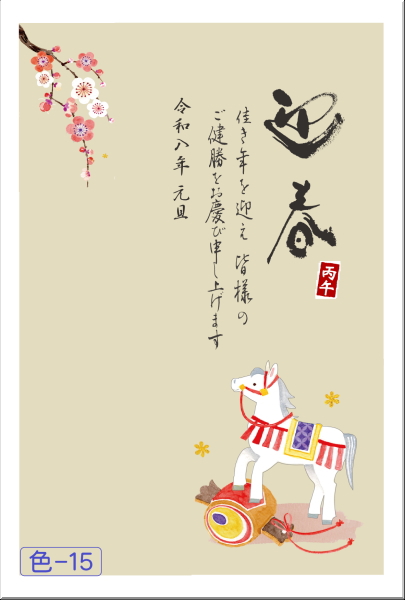 迎春
丙午
佳き年を迎え 皆様の
ご健勝をお慶び申し上げます
令和八年 元旦
色-15